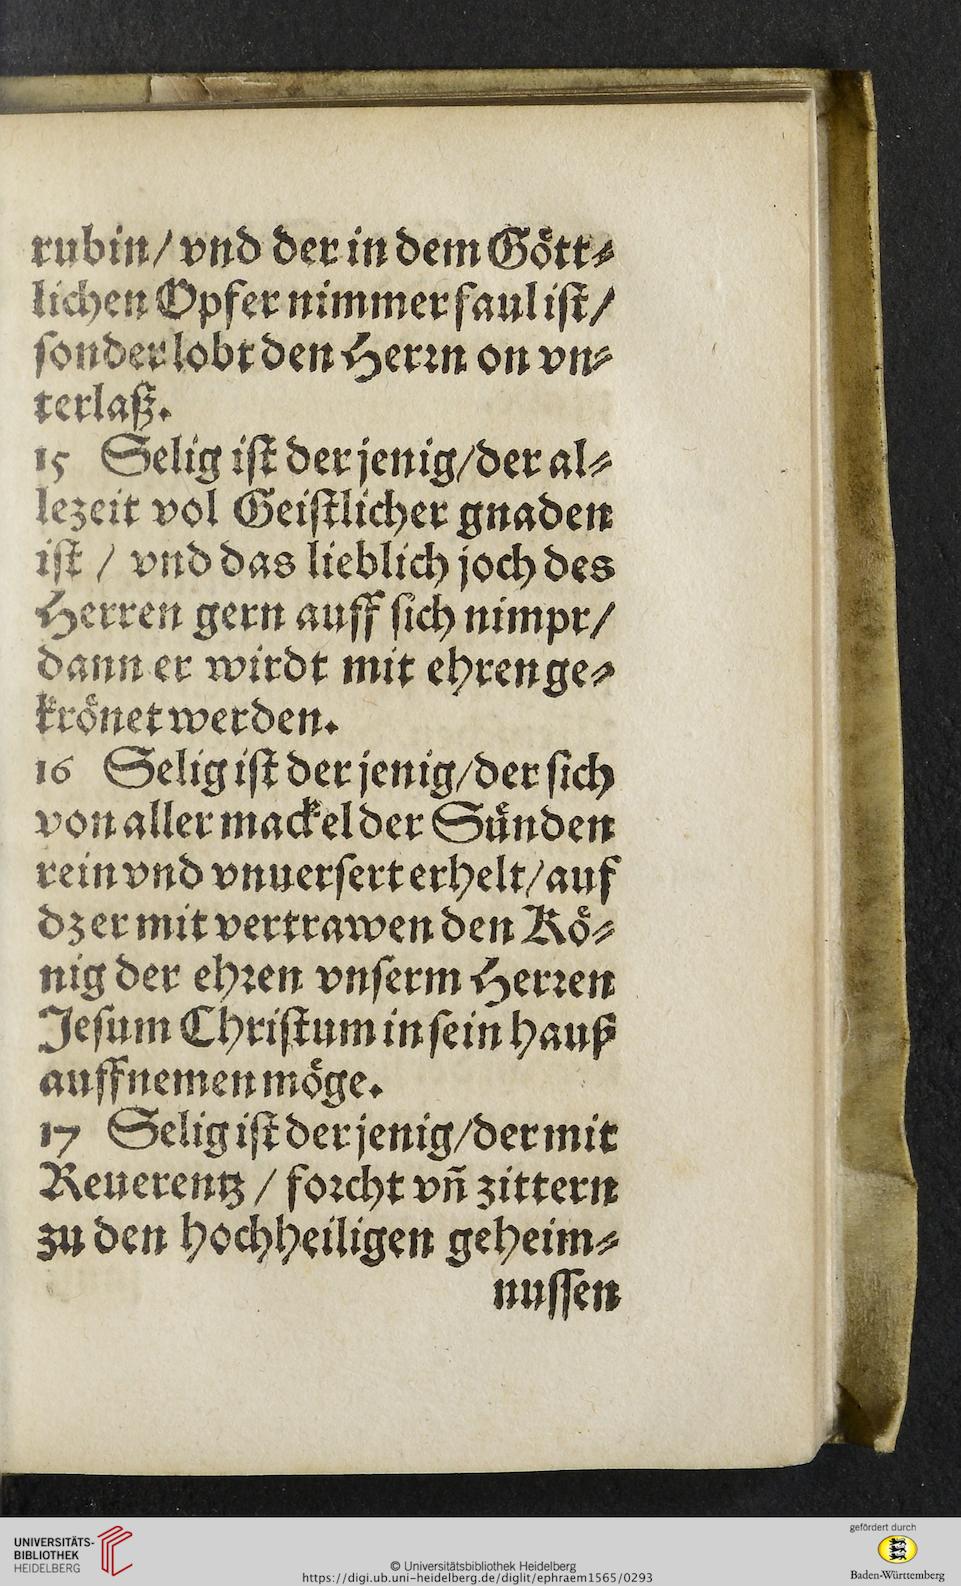 rubin/ vnd der in dem Gött⸗
lichen Opfer nimmer faul iſt/
ſonder lobt den Herꝛn on vn⸗
terlaß.
15 Selig iſt der jenig/ der al⸗
lezeit vol Geiſtlicher gnaden
iſt / vnd das lieblich joch des
Herren gern auff ſich nimpt/
dann er wirdt mit ehren ge⸗
krönet werden.
16 Selig iſt der jenig/ der ſich
von aller mackel der Sünden
rein vnd vnuerſert erhelt/ auf
dz er mit vertrawen den Kö⸗
nig der ehꝛen vnſerm Herꝛen
Jeſum Chriſtum in ſein hauß
auffnemen möge.
17 Selig iſt der jenig/ der mit
Reuerentz / foꝛcht vñ zittern
zu den hochheiligen geheim⸗
nuſſen
UNIVERSITÄTS-
BIBLIOTHEK
HEIDELBERG
© Universitätsbibliothek Heidelberg
https://digi.ub.uni-heidelberg.de/diglit/ephraem1565/0293
gefördert durch
Baden-Württemberg